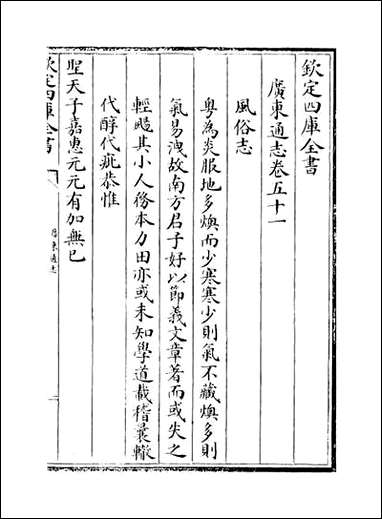 欽定四庫全書
廣東通志卷五十一
風俗志
粵為炎服地多燠而少寒寒少則氣不藏燠多則
氣易洩故南方君子好以節義文章著而或失之
輕颺其小人務本力田亦或未知學道載稽曩轍
代醇代疵恭惟
聖天子嘉惠元元有加無已
欽定四庫全書